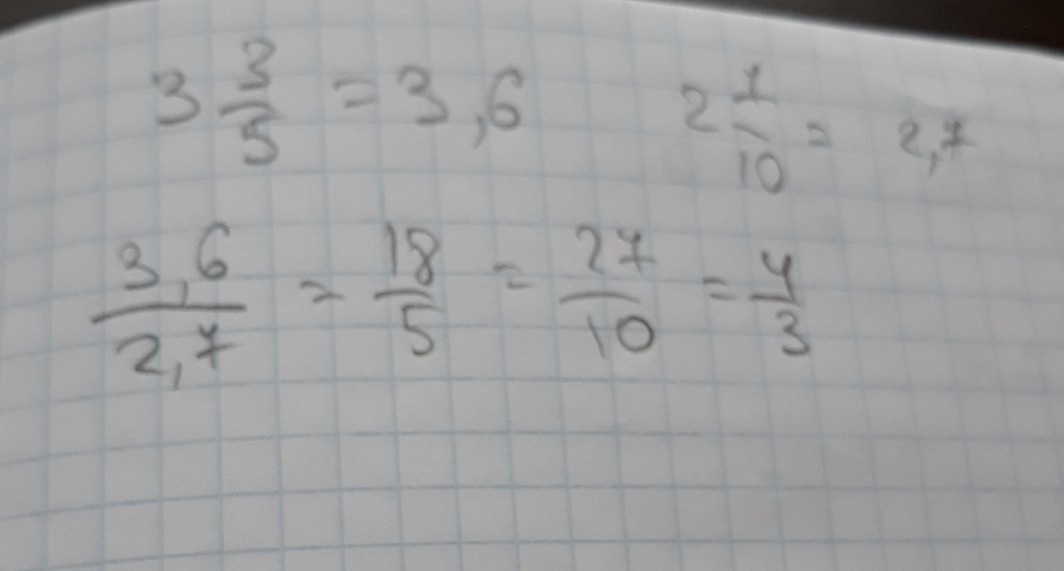 3 3/5 = 3,6 2 7/10 = 2,7
3,6/2,7 = 18/5 = 27/10 = 4/3